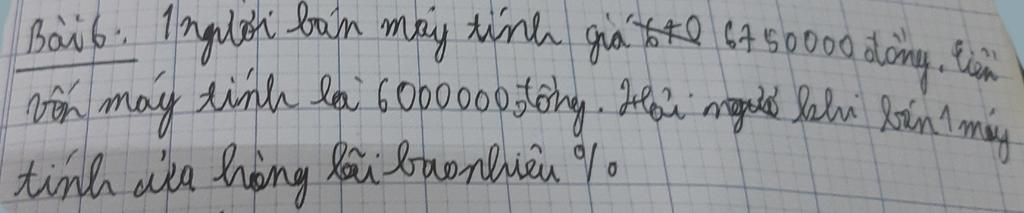 Bài 6: 1 người bán máy tính giá 6750000 đồng. tiền
vốn máy tính là 6000000 đồng. Hỏi khi bán 1 máy
tính cửa hàng lãi bao nhiêu %